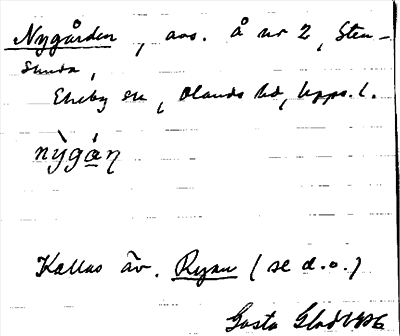 Nygården, avs. å nr 2, Sten-
sunda,
Ekeby sn, Olands hd, Upps. l.
nỳgá̱n̥
Kallas äv. Ryan (se d.o.)
Gösta